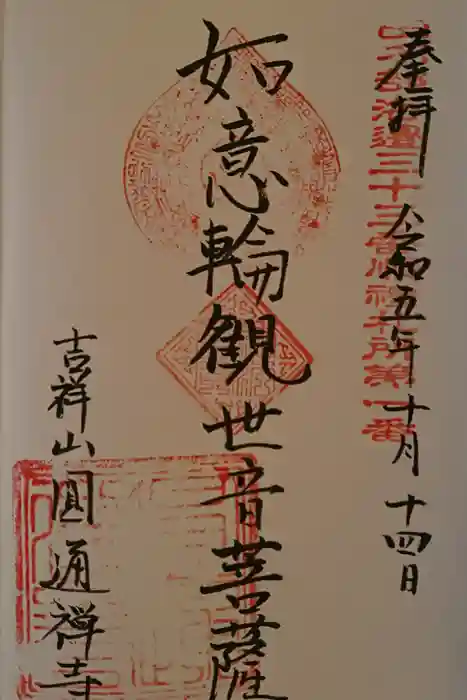 奉拝 令和五年十月十四日
三十三
第一番
如意輪観世音菩薩
吉祥山圓通禅寺